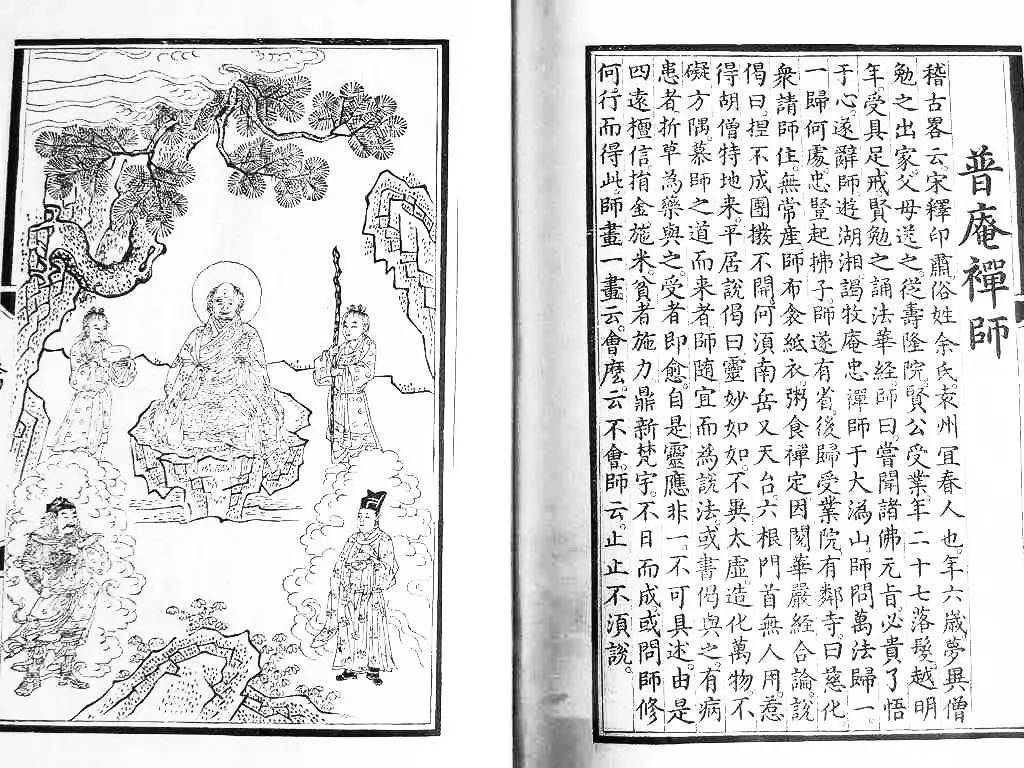 普庵禪師
稽古畧云。宋釋印肅俗姓余氏袁州宜春人也。年六歲夢異僧
勉之出家。父母送之。從壽隆院。賢公受業年二十七落髮。越明
年。受具足戒賢勉之誦法華經。師曰嘗聞諸佛元旨。必貴了悟
于心。遂辭師遊湖湘謁牧庵忠禪師于大溈山。師問萬法歸一。
一歸何處。忠豎起拂子。師遂有省。後歸受業院有鄰寺。曰慈化
衆請師住。無常産師布衾紙衣。粥食禪定因閱華嚴經合論。說
偈曰。揑不成團撥不開。何須南岳又天台。六根門首無人用。惹
得胡僧特地來。平居說偈曰靈妙如如。不異太虛。造化萬物。不
礙方隅慕師之道而來者。師随宜而為說法。或書偈與之。有病
患者折草為藥與之。受者即愈。自是靈應非一。不可具述。由是
四遠檀信。捐金施米。貧者施力鼎新梵宇。不日而成。或問師修
何行而得此。師畫一畫云。會麼。云不會。師云。止止不須說。